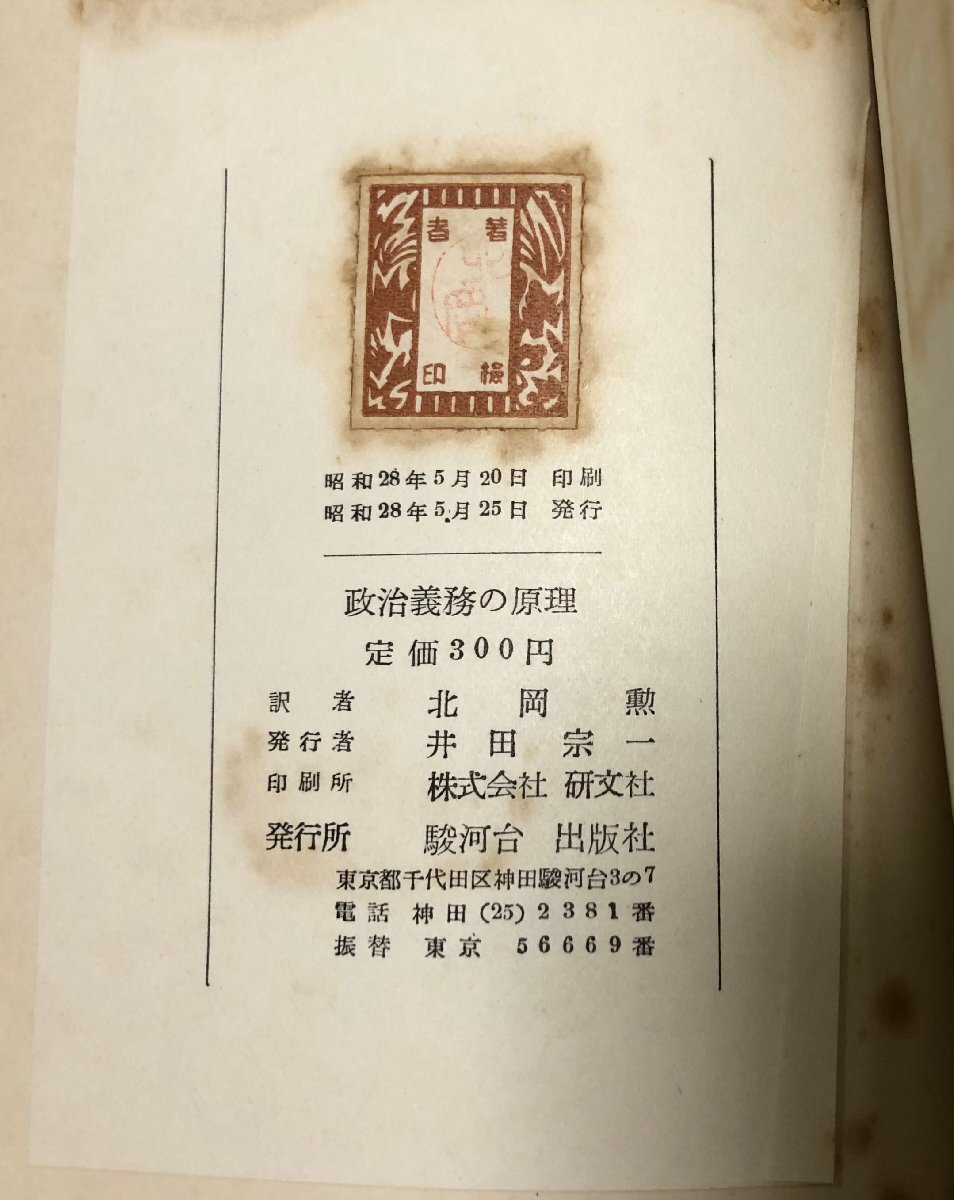 著者
北岡
検印
昭和28年5月20日 印刷
昭和28年5月25日 発行
政治義務の原理
定価300円
訳者 北岡勲
発行者 井田宗一
印刷所 株式会社 研文社
発行所 駿河台 出版社
東京都千代田区神田駿河台3の7
電話 神田(25)2381番
振替 東京 56669番